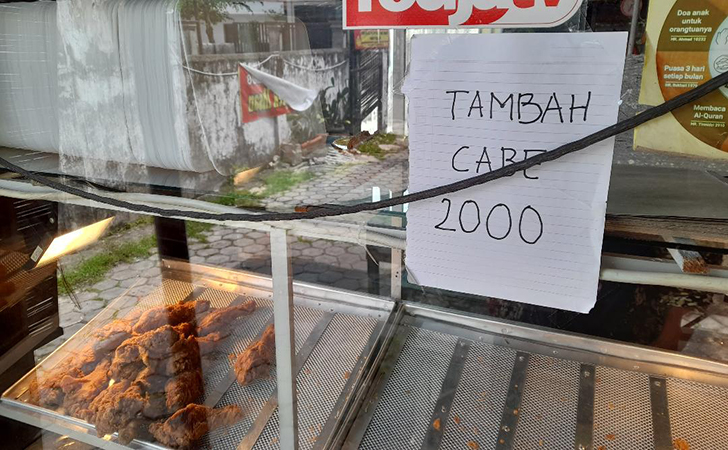 rodja tv
TAMBAH
CABE
2000
Doa anak
untuk
orangtuanya
Puasa 3 hari
setiap bulan
Membaca
Al-Quran